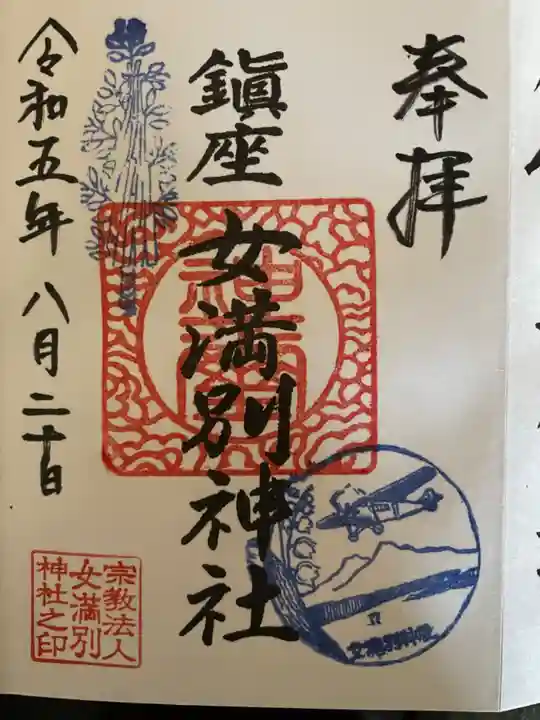 奉拝
鎭座
女満別神社
令和五年八月二十日
宗教法人
女満別
神社之印
女満別神社